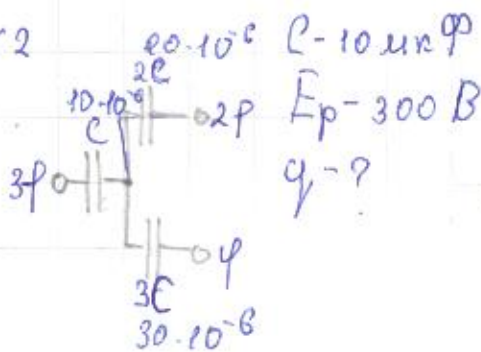 2
20·10⁻⁶
2C
2φ
10·10⁻⁶
C
3φ
φ
3C
30·10⁻⁶
C - 10 мкФ
Eр - 300 В
q - ?